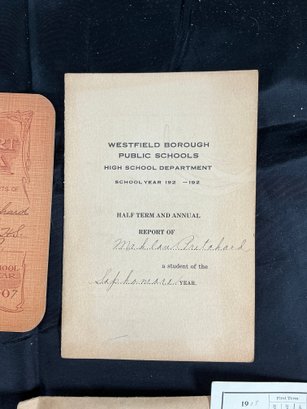 WESTFIELD BOROUGH
PUBLIC SCHOOLS
HIGH SCHOOL DEPARTMENT
SCHOOL YEAR 192 —192
HALF TERM AND ANNUAL
REPORT OF Mahlon Pritchard
a student of the
Sophomore YEAR.
First Term